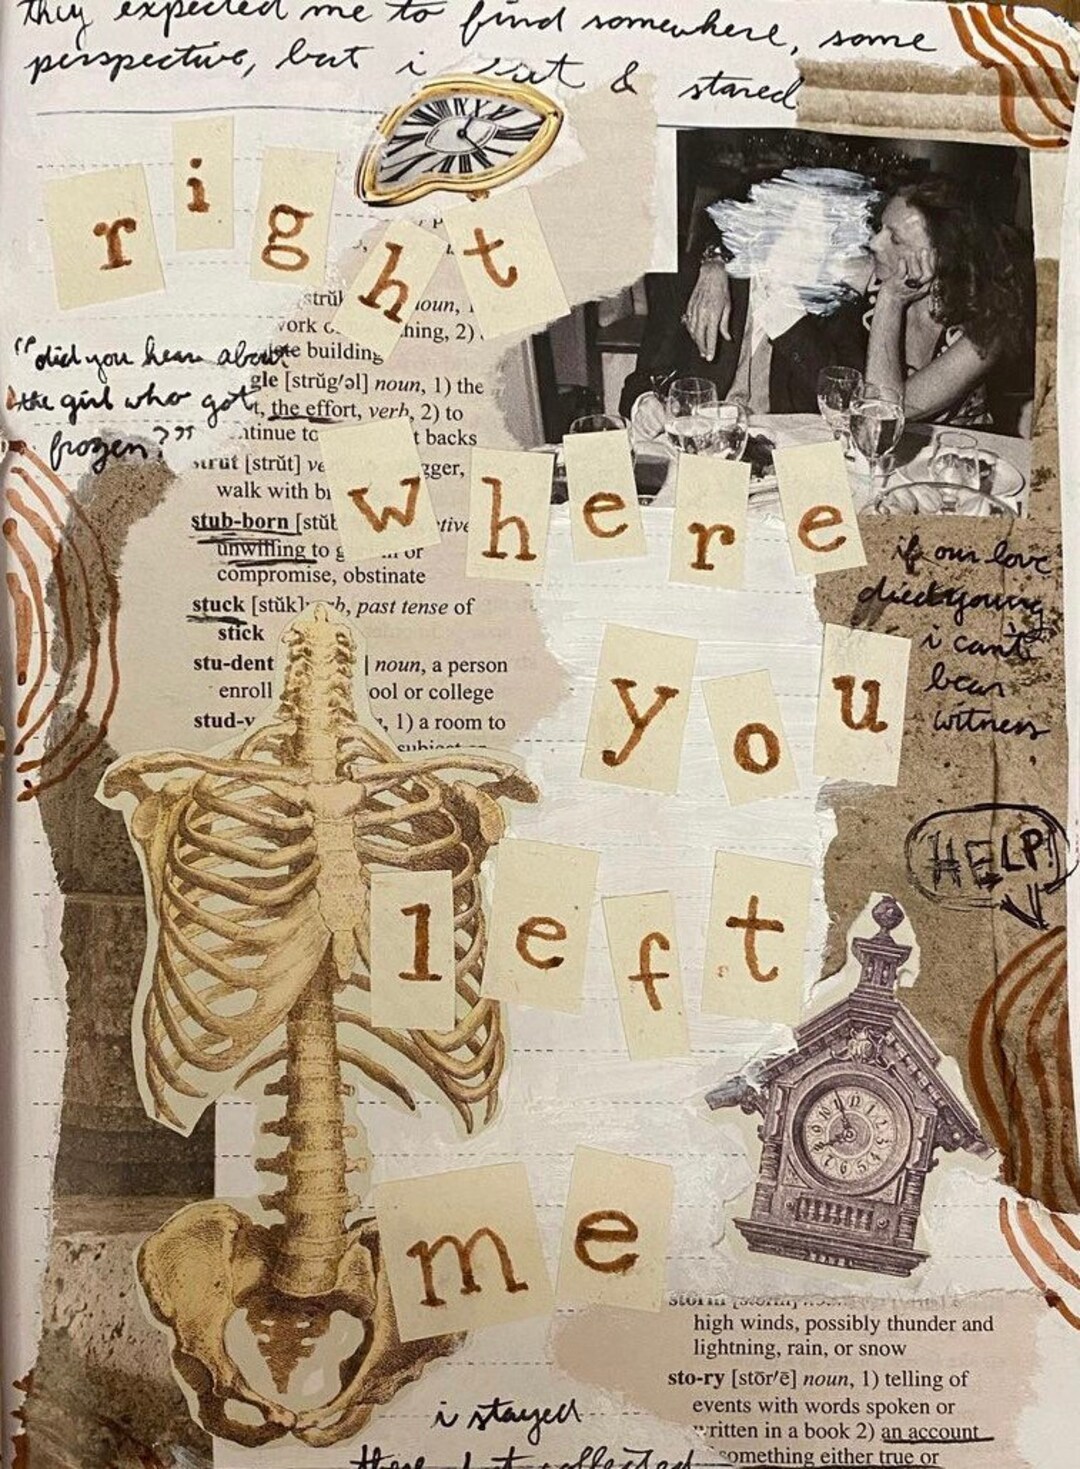 they expected me to find somewhere, some
perspective, but i sat & stared
right
noun,
work o hing, 2)
building
"did you hear about
gle [strŭg′əl] noun, 1) the
the girl who got
the effort, verb, 2) to
frozen?"
tinue to t backs
strut [strŭt] ve gger,
walk with
where
stub-born [stŭb tive
unwilling to or
compromise, obstinate
if our love
died young
i can't
bear
witness
stuck [stŭk] verb, past tense of
stick
stu-dent noun, a person
enroll ool or college
stud-y , 1) a room to
subject or
you
HELP!
left
12
1
2
3
4
5
6
7
8
me
storm
high winds, possibly thunder and
lightning, rain, or snow
sto-ry [stōr′ē] noun, 1) telling of
events with words spoken or
written in a book 2) an account
something either true or
i stayed
there, dust collected